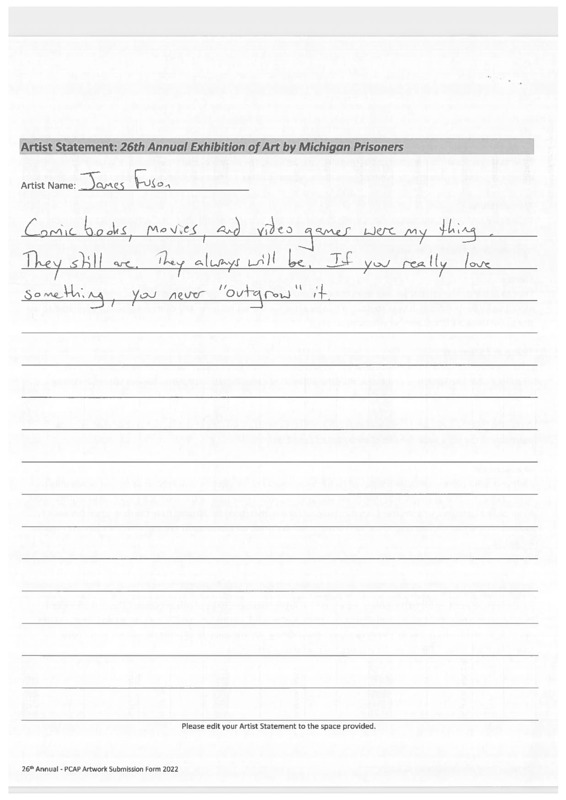 Artist Statement: 26th Annual Exhibition of Art by Michigan Prisoners
Artist Name: James Fuson
Comic books, movies, and video games were my thing.
They still are. They always will be. If you really love
something, you never "outgrow" it.
Please edit your Artist Statement to the space provided.
26th Annual - PCAP Artwork Submission Form 2022